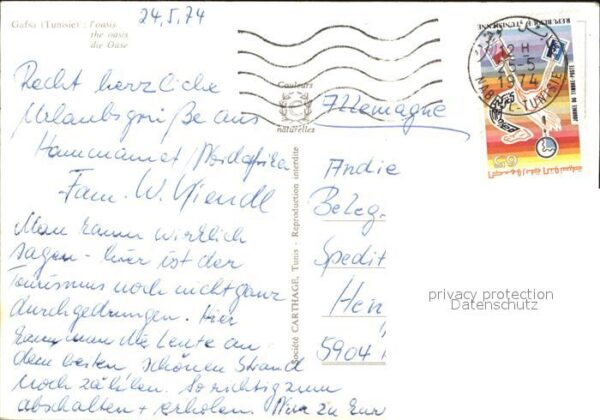 Gafsa (Tunisie) : l'oasis
the oasis
die Oase
24.5.74
Recht herzliche
Urlaubsgrüße aus
Hammamet / Nordafrika
Fam. W.
Man kann wirklich
sagen - hier ist der
Tourismus noch nicht ganz
durchgedrungen. Hier
kann man die Leute an
dem besten, schönen Strand
noch zählen. So richtig zum
abschalten + erholen. Wir zu Eur
Couleurs
naturelles
Société CARTHAGE, Tunis - Reproduction interdite
Allemagne
An die
Beleg
Spedit
Hen
5904
REPUBLIQUE TUNISIENNE
JOURNEE DU TIMBRE-POSTE
65
12H
25-5
1974
TUNISIE
privacy protection
Datenschutz